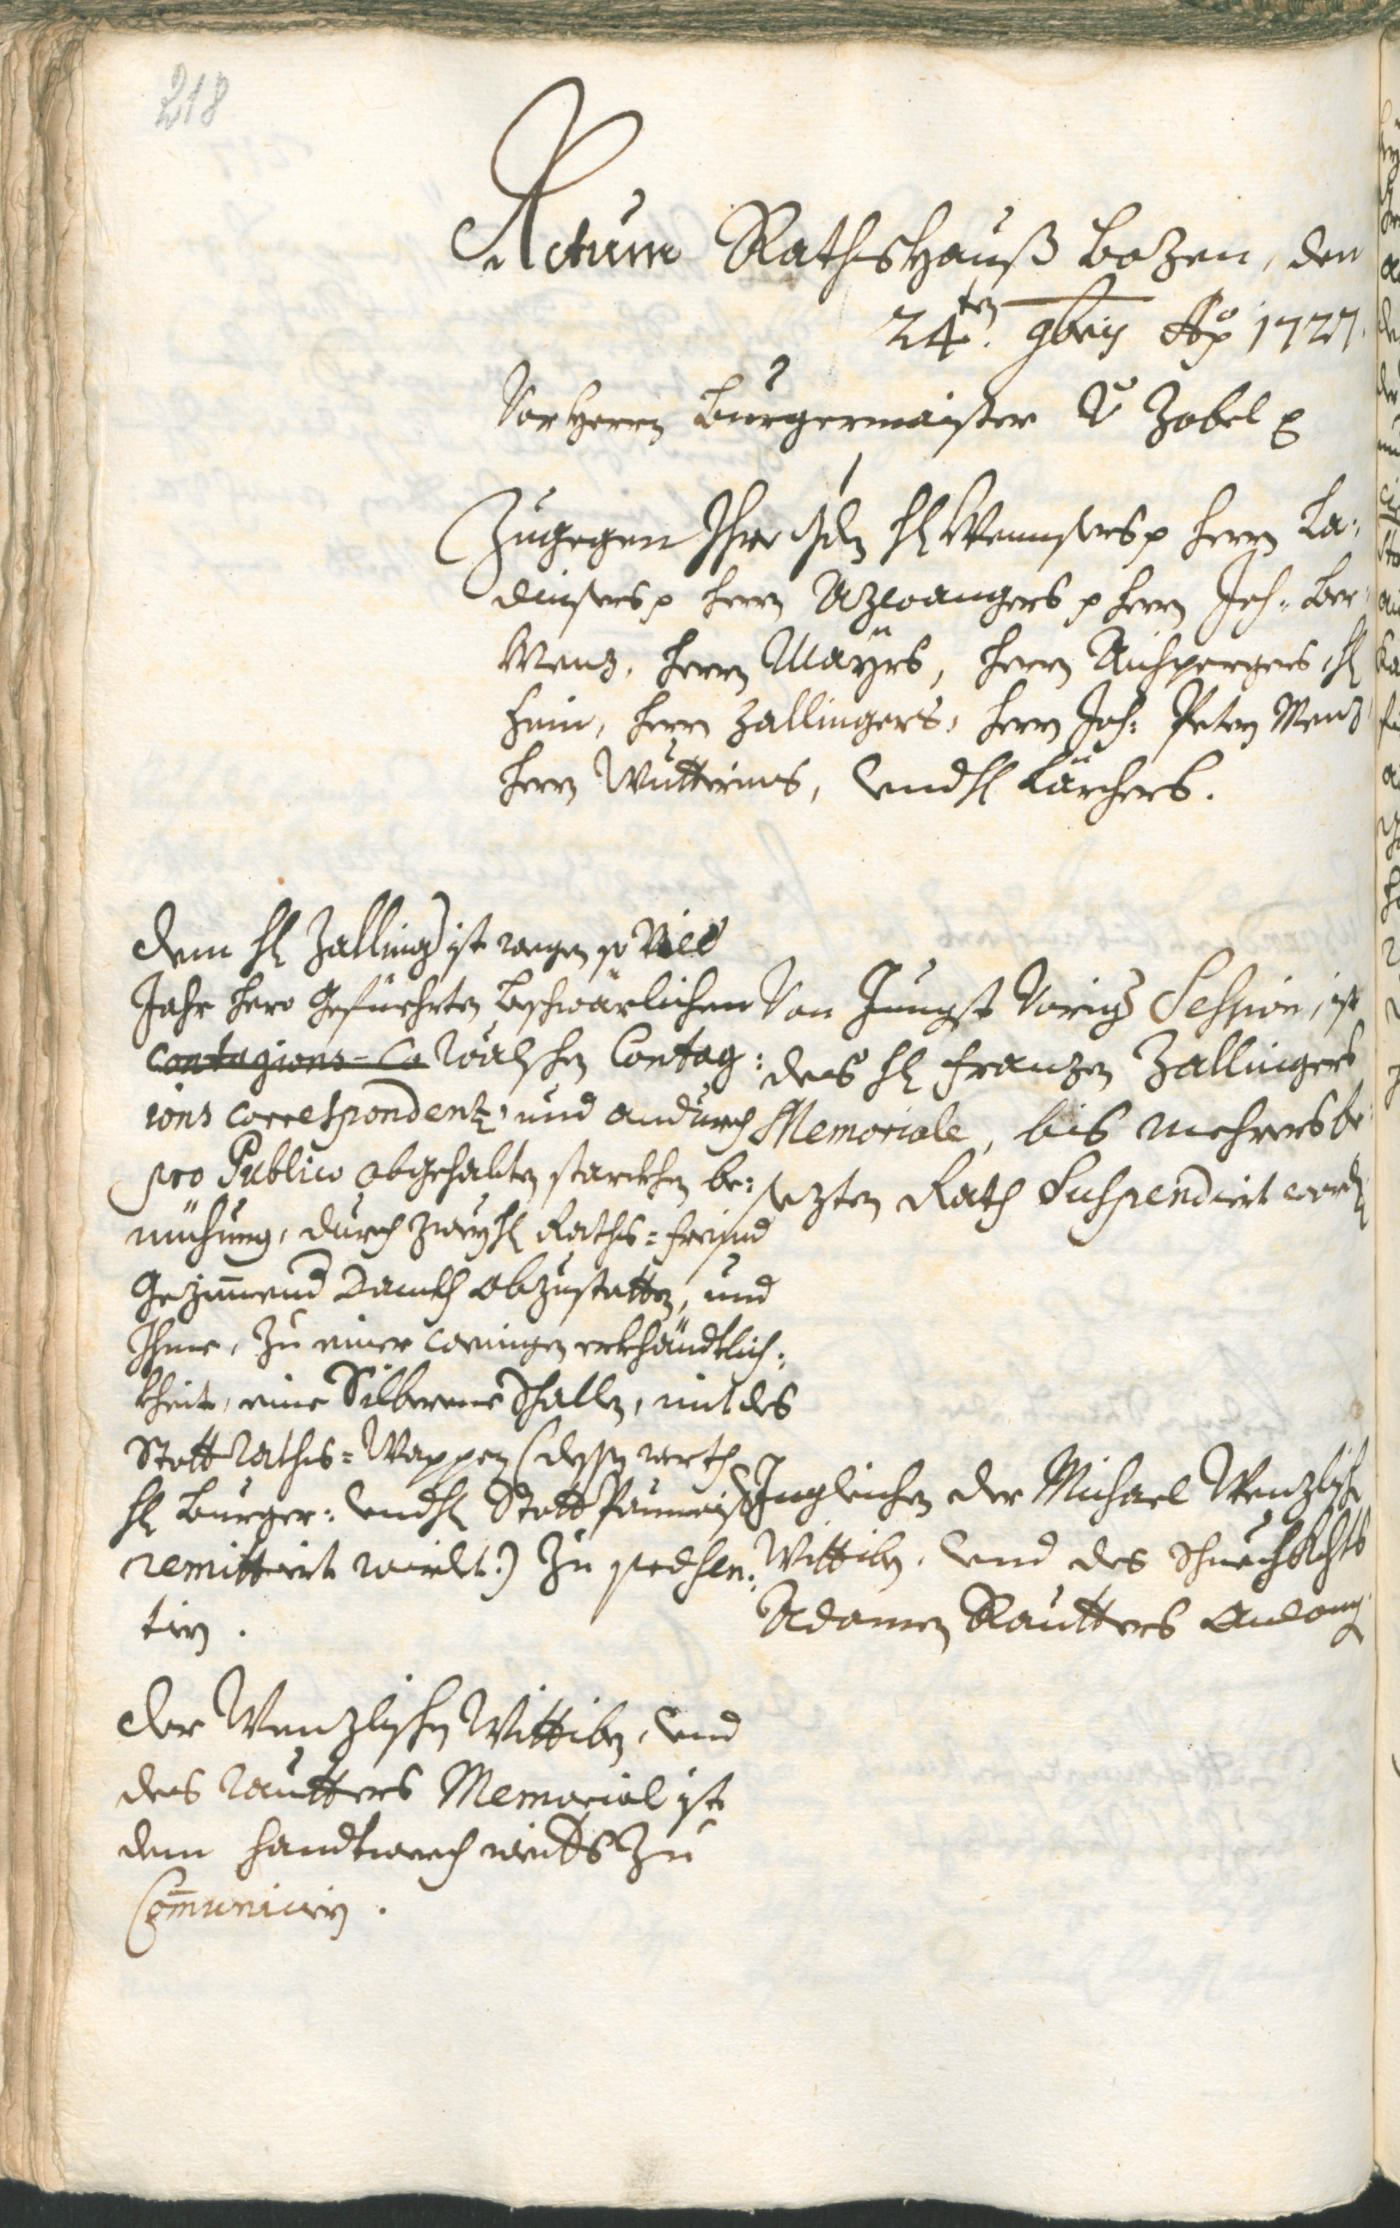 218
Actum Rathshauß Bozen, den
24ten. 9bris Ao 1727.
Vor Herrn Burgermaister v Zobel
Zugegen Ihro Hl Wenser p herrn La:
dinsers p herrn Azwangers p herrn Joh: Ber
Menz, herrn Mayrs, herrn Aichpergers, Hl
Hein, herrn Zallingers, herrn Joh: Peter Menz
herrn Wütterins, und Hl Lärchers.
dem Hl Zallinger ist wegen so Vill
Jahr hero Gefüehrten beschwärlichen
contagions-Co wälschen Contag:
ions correspondenz, und andurch
pro Publico obgehabten starckhen be:
müehung, durch zwey Hl Raths=freynd
Gezimmend Danckh abzustatten, und
Ihme, zu einer weningen erkhändtlich:
kheit, eine Silberne Schallen, mit des
Statt Raths=Wappen (dessen werth
Hl Burger: und Hl Statt Paumaister
remittirt wirdet:) zu presen:
tirn.
Von Jüngst Voriger Session, ist
des Hl Franzen Zallingers
Memoriale, bis mehrers be:
sezten Rath Suspendiert word
Ingleichen der Michael Wenzlische
Wittiben, und des Schuech
Adamen Rautters Anlang
der Wenzlischen Wittiben, und
des Rautters Memorial ist
dem handtwerch zu
Communicirn.